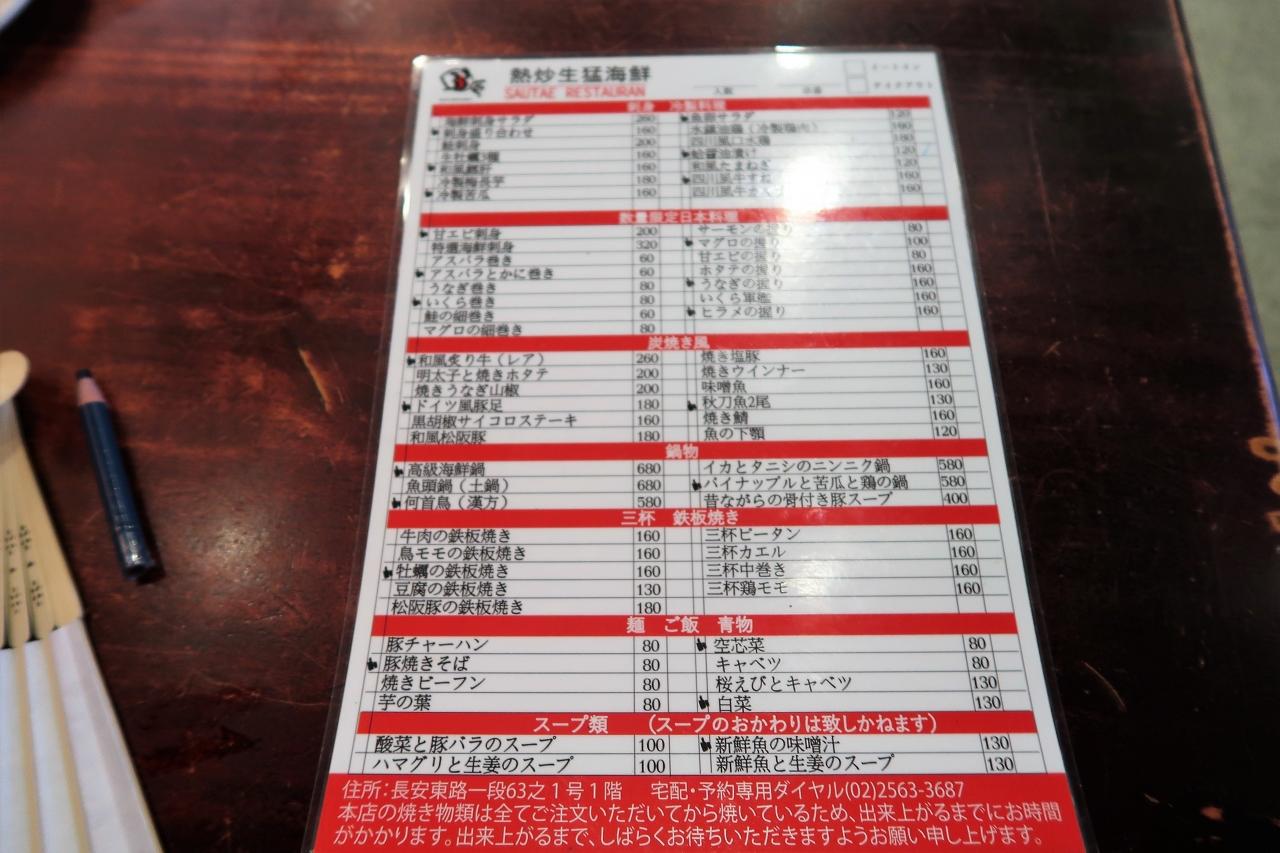 熱炒生猛海鮮
SAUTAE RESTAURAN
イートイン
テイクアウト
人数
刺身 冷製料理
海鮮刺身サラダ 260 魚卵サラダ 120
刺身盛り合わせ 160 水鹹油鶏（冷製鶏肉） 160
鮭刺身 200 四川風口水鶏 180
生牡蠣3種 160 蛤醤油漬け 120
160 和風たまねぎ 120
冷製梅長芋 180 四川風牛すね 160
冷製苦瓜 160 四川風牛 160
数量限定日本料理
甘エビ刺身 200 サーモンの握り 80
特選海鮮刺身 320 マグロの握り 100
アスパラ巻き 60 甘エビの握り 80
アスパラとかに巻き 60 ホタテの握り 160
うなぎ巻き 80 うなぎの握り 160
いくら巻き 80 いくら軍艦 160
鮭の細巻き 60 ヒラメの握り 160
マグロの細巻き 80
炭焼き風
和風炙り牛（レア） 260 焼き塩豚 160
明太子と焼きホタテ 200 焼きウインナー 130
焼きうなぎ山椒 200 味噌魚 160
ドイツ風豚足 180 秋刀魚2尾 130
黒胡椒サイコロステーキ 160 焼き鯖 160
和風松阪豚 180 魚の下顎 120
鍋物
高級海鮮鍋 680 イカとタニシのニンニク鍋 580
魚頭鍋（土鍋） 680 パイナップルと苦瓜と鶏の鍋 580
何首烏（漢方） 580 昔ながらの骨付き豚スープ 400
三杯 鉄板焼き
牛肉の鉄板焼き 160 三杯ピータン 160
鳥モモの鉄板焼き 160 三杯カエル 160
牡蠣の鉄板焼き 160 三杯中巻き 160
豆腐の鉄板焼き 130 三杯鶏モモ 160
松阪豚の鉄板焼き 180
麺 ご飯 青物
豚チャーハン 80 空芯菜 80
豚焼きそば 80 キャベツ 80
焼きビーフン 80 桜えびとキャベツ 130
芋の葉 80 白菜 130
スープ類 （スープのおかわりは致しかねます）
酸菜と豚バラのスープ 100 新鮮魚の味噌汁 130
ハマグリと生姜のスープ 100 新鮮魚と生姜のスープ 130
住所：長安東路一段63之１号１階 宅配・予約専用ダイヤル(02)2563-3687
本店の焼き物類は全てご注文いただいてから焼いているため、出来上がるまでにお時間
がかかります。出来上がるまで、しばらくお待ちいただきますようお願い申し上げます。